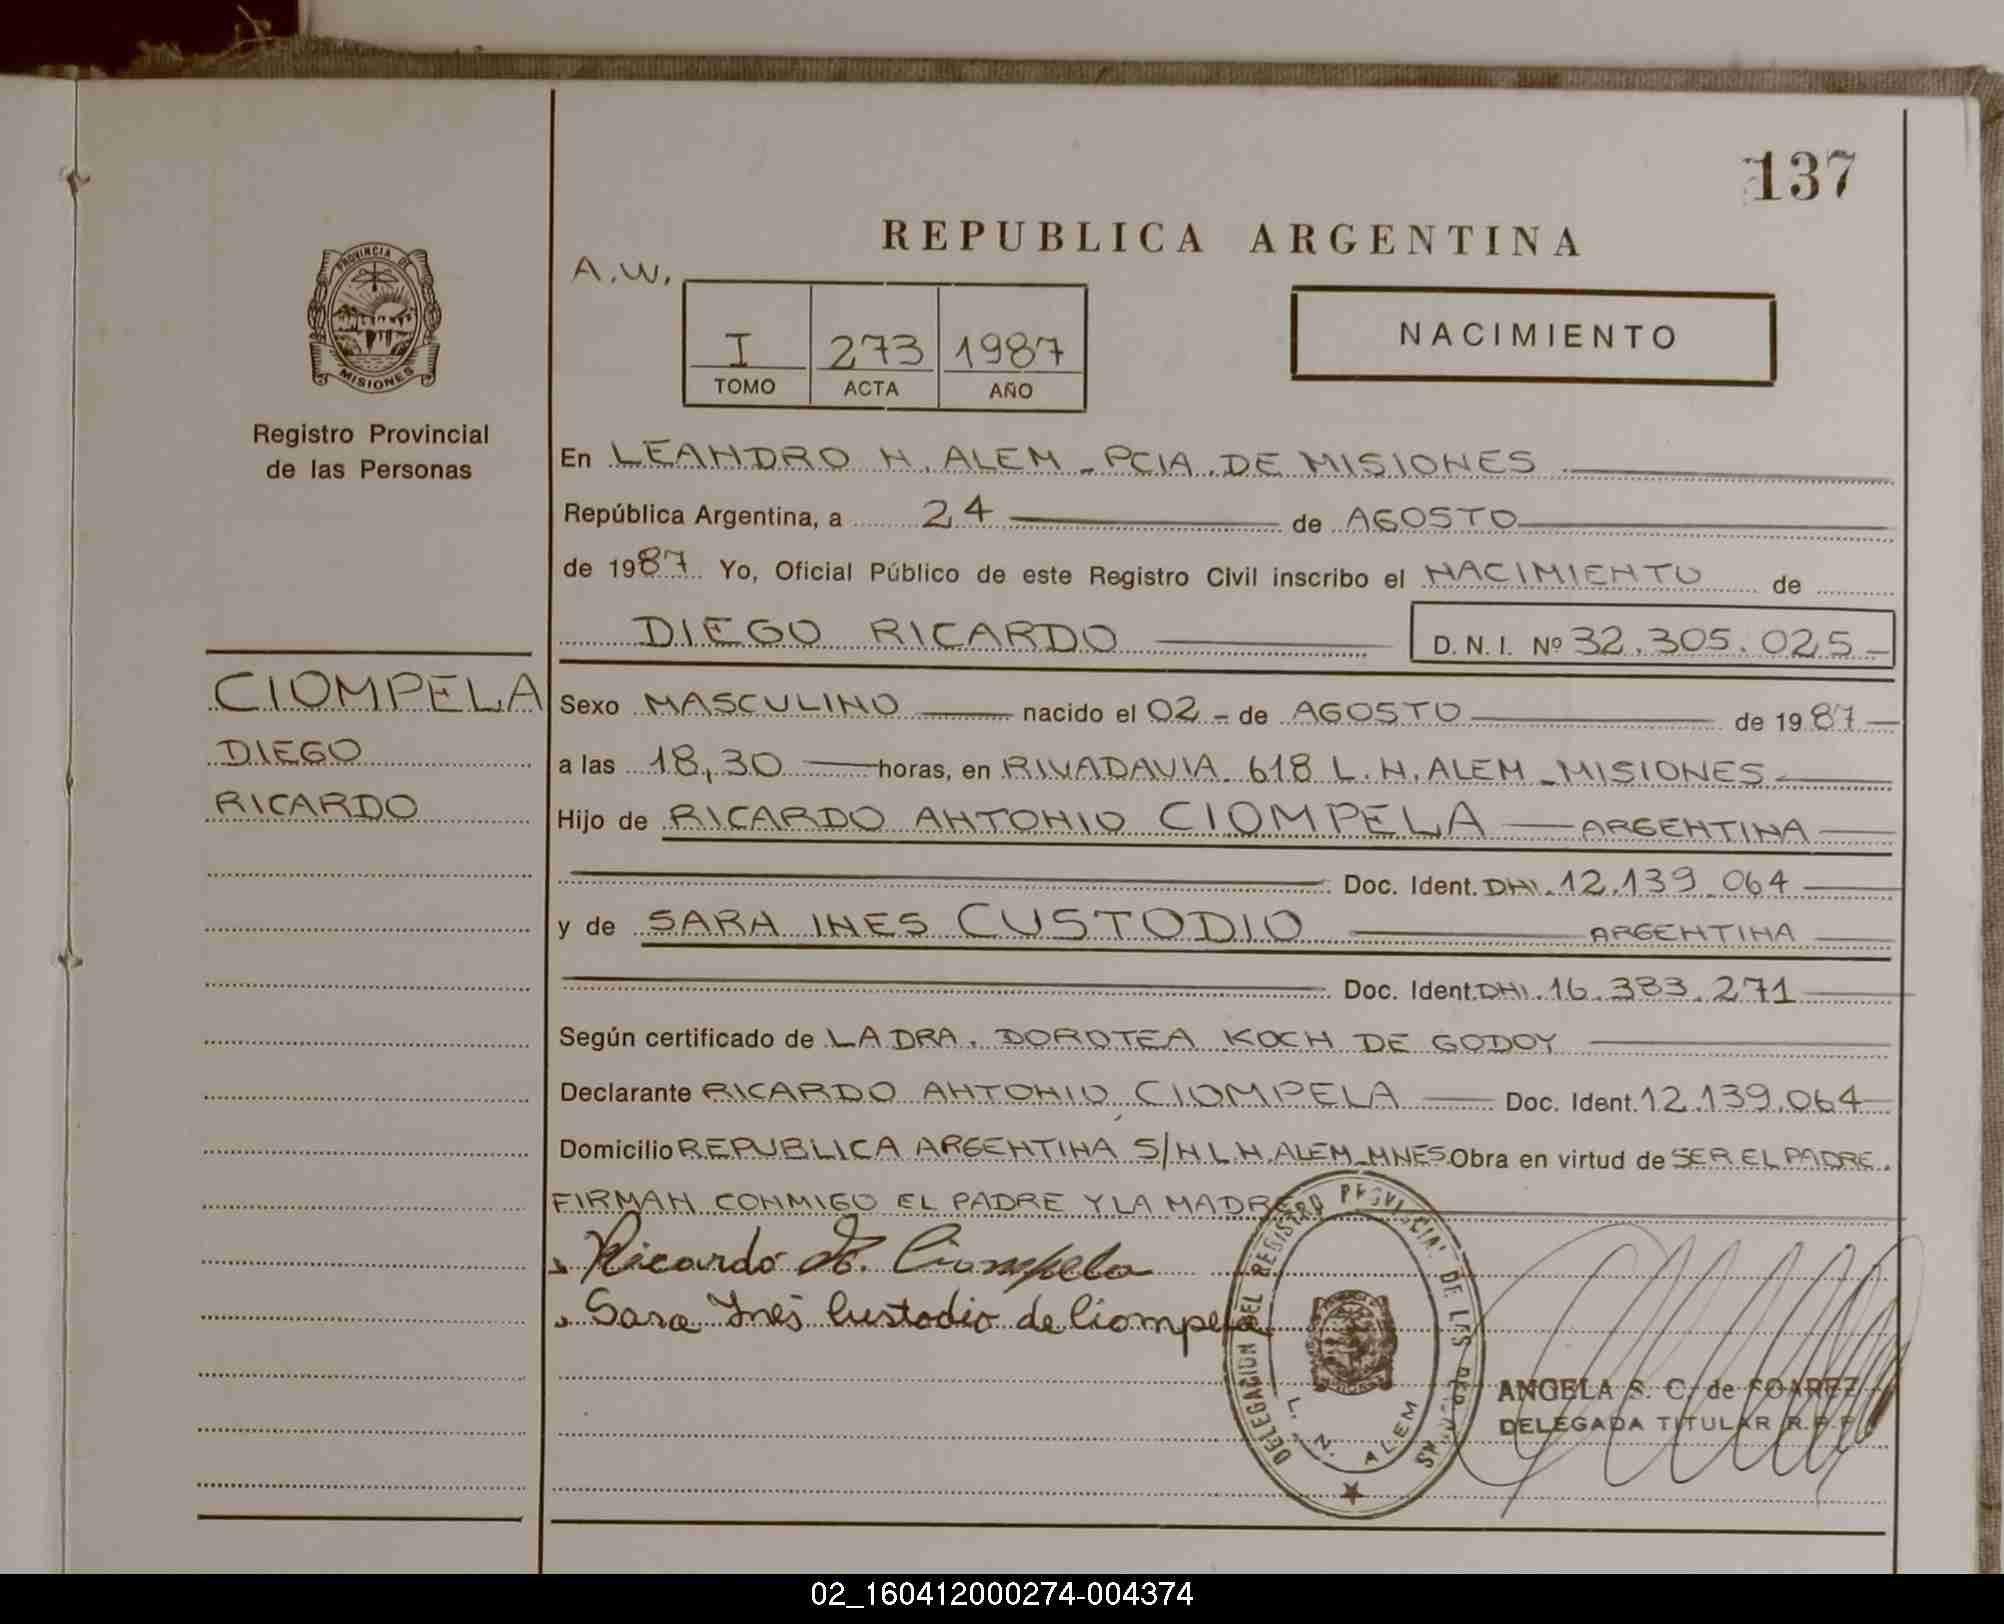 137
REPUBLICA ARGENTINA
A.W.
I 273 1987
TOMO ACTA AÑO
NACIMIENTO
PROVINCIA DE
MISIONES
Registro Provincial
de las Personas
En LEANDRO N. ALEM - PCIA. DE MISIONES
República Argentina, a 24 de AGOSTO
de 1987 Yo, Oficial Público de este Registro Civil inscribo el NACIMIENTO de
DIEGO RICARDO D. N. I. Nº 32.305.025
CIOMPELA
DIEGO
RICARDO
Sexo MASCULINO nacido el 02 - de AGOSTO de 1987
a las 18,30 horas, en RIVADAVIA 618 L.N. ALEM - MISIONES
Hijo de RICARDO ANTONIO CIOMPELA ARGENTINA
Doc. Ident. DNI. 12.139.064
y de SARA INES CUSTODIO ARGENTINA
Doc. Ident. DNI. 16.383.271
Según certificado de LA DRA. DOROTEA KOCH DE GODOY
Declarante RICARDO ANTONIO CIOMPELA Doc. Ident. 12.139.064
Domicilio REPUBLICA ARGENTINA S/N L.N. ALEM - MNES Obra en virtud de SER EL PADRE.
FIRMAN CONMIGO EL PADRE Y LA MADRE
Ricardo A. Ciompela
Sara Inés Custodio de Ciompela
DELEGACION DEL REGISTRO PROVINCIAL DE LAS PERSONAS
L. N. ALEM
ANGELA S. C. de SOAREZ
DELEGADA TITULAR R.P.P.
02_160412000274-004374